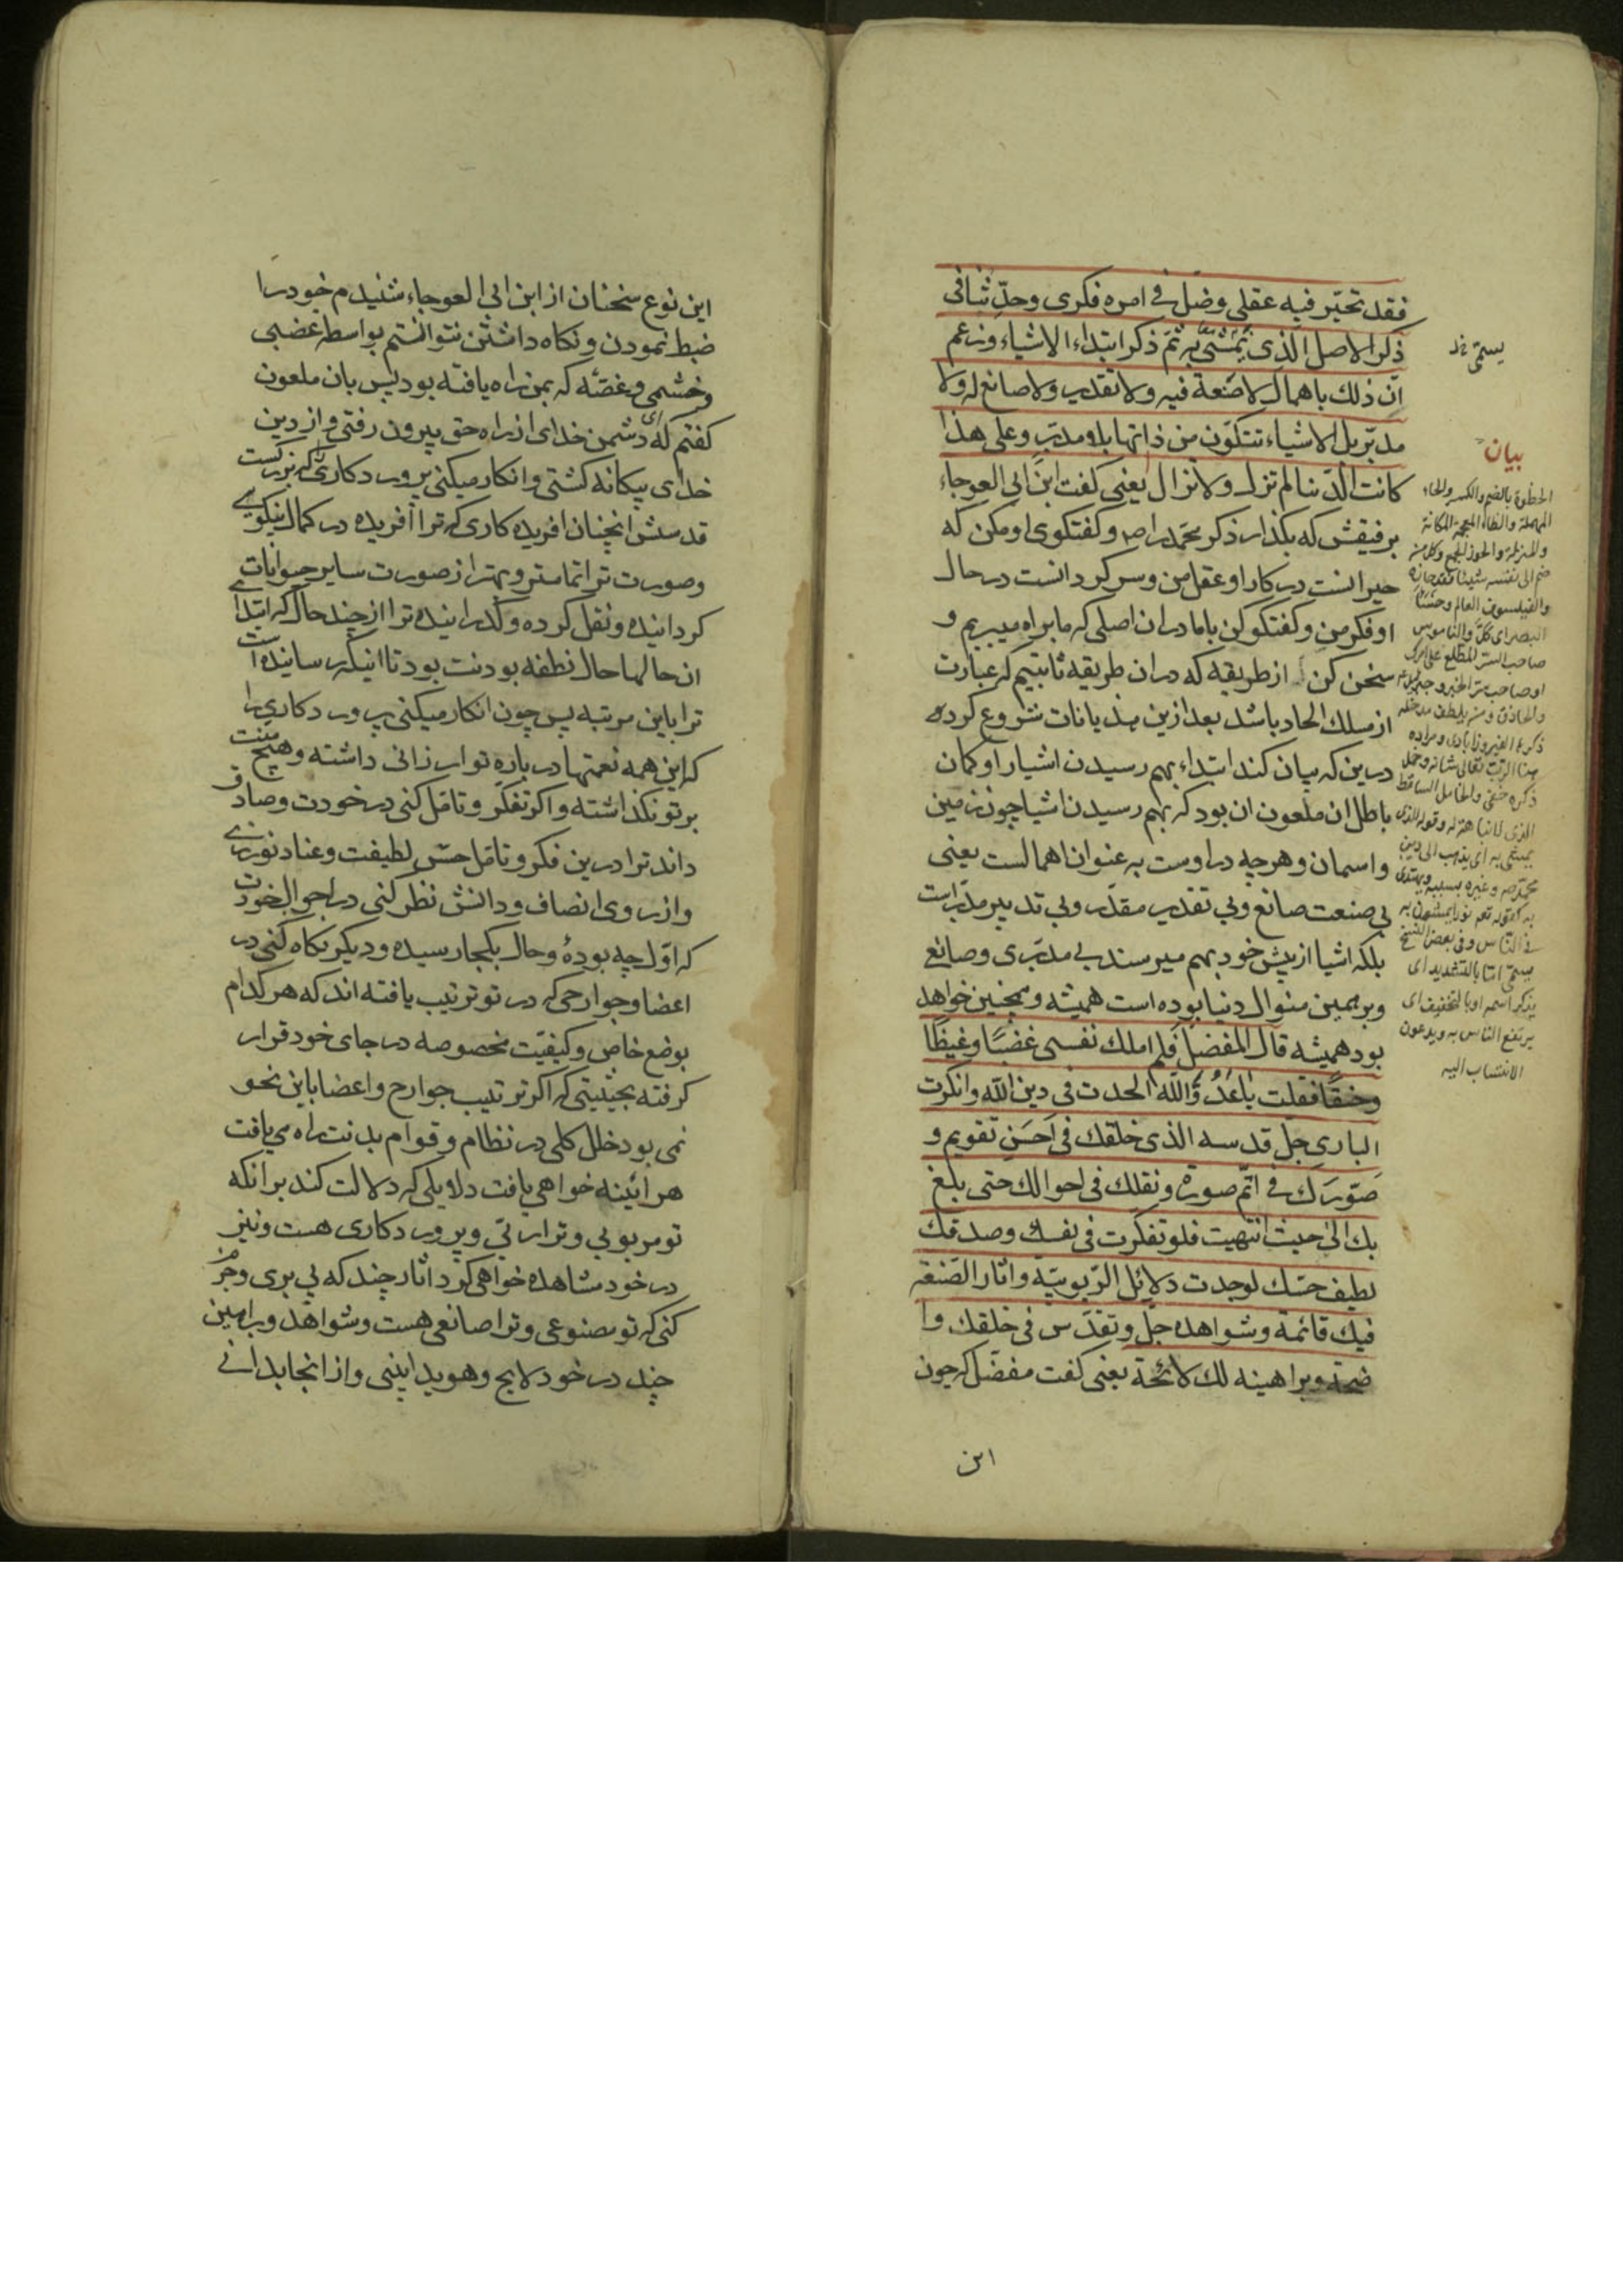 فقد تحیّر فیه عقلی وضلّ فی امره فکری وحدّثنا فی
ذکر الاصل الذی یمشی به ثمّ ذکر ابتداء الاشیاء وزعم
انّ ذلک باهمال لا صنعة فیه ولا تقدیر ولا صانع له ولا
مدبّر بل الاشیاء تتکوّن من ذاتها بلا مدبّر وعلی هذا
کانت الدّنیا لم تزل ولا تزال یعنی کفت ابن ابی العوجاء
برفیقش که بکذار ذکر محمّد را ص و کفتکوی او مکن که
حیرانست در کار او عقل من وسرکردانست در حال
او فکر من و کفتکو کن باما دران اصلی که ما براه میبریم و
سخن کن از طریقه که دران طریقه ثابتیم که عبارت
از مسلک الحاد باشد بعد ازین هذیانات شروع کرده
درین که بیان کند ابتداء بهم رسیدن اشیارا و کمان
باطل ان ملعون ان بود که بهم رسیدن اشیا چون زمین
واسمان وهرچه دراوست به عنوان اهمالست یعنی
بی صنعت صانع وبی تقدیر مقدّر وبی تدبیر مدبّراست
بلکه اشیا از پیش خود بهم میرسند بی مدبّری وصانع
وبرهمین منوال دنیا بوده است همیشه وهمچنین خواهد
بود همیشه قال المفضل فلم املک نفسی غضبًا وغیظًا
وحنقًا فقلت یا عدُوَّ اللّه الحدت فی دین اللّه وانکرت
الباری جل قدسه الذی خلقک فی احسن تقویم و
صوّرک فی اتمّ صورة ونقلک فی احوالک حتی بلغ
بک الیٰ حیث انتهیت فلو تفکّرت فی نفسک وصدقک
لطیف حسّک لوجدت دلائل الرّبوبیّه واثار الصّنعة
فیک قائمة وشواهده جلّ وتقدّس فی خلقک وا
ضحة وبراهینه لک لائحة یعنی کفت مفضّل که چون
این
یسمّی خ‌ل
بیان
الحظوة بالضم والکسر والحاء
المهملة والظاء المعجمة المکانة
والمنزلة والحوز الجمع وکل من
ضم الی نفسه شیئا فقد حازه
والفیلسوف العالم وحسر
البصر ای کلّ والناموس
صاحب السّر المطّلع علی امرک
او صاحب سرّ الخیر وجبرئیل ع
والحاذق ومن یلطف مدخله
ذکره الفیروزابادی ومراده
هنا الرّب تعالی شانه وخمل
ذکره خفی والخامل الساقط
الذی لا نباهة له وقوله الذی
یمشی به ای یذهب الی دین
محمّد ص وغیره بسببه ویهتدی
به کقوله تعم نورا یمشون به
فی النّاس وفی بعض النّسخ
یسمّی امّا بالتشدید ای
یذکر اسمه او بالتخفیف ای
یرتفع الناس به ویدعون
الانتساب الیه
این نوع سخنان از ابن ابی العوجاء شنیدم خود را
ضبط نمودن ونکاه داشتن نتوانستم بواسطه غضبی
وخشمی وغصّه که بمن راه یافته بود پس بان ملعون
کفتم که ای دشمن خدای از راه حق بیرون رفتی واز دین
خدای بیکانه کشتی وانکار میکنی پروردکاری را که بزرکست
قدسش انچنان افریده کاری که ترا آفریده در کمال نیکویی
وصورت ترا تمامتر وبهتر از صورت سایر حیوانات
کردانیده ونقل کرده وکذرانیده ترا از چند حال که ابتدای
ان حالها حال نطفه بودنت بود تا انیکه رسانیده است
ترا باین مرتبه پس چون انکار میکنی پروردکاری را
که این همه نعمتها در باره تو ارزانی داشته وهیچ منّت
بر تو نکذاشته و اکر تفکّر و تامّل کنی در خودت وصادق
داند ترا درین فکر و تامّل حسّ لطیفت وعناد نورزی
واز روی انصاف و دانش نظر کنی در احوال خودت
که اوّل چه بودهٔ وحال بکجا رسیده و دیکر نکاه کنی در
اعضا وجوارحی که در تو ترتیب یافته اند که هر کدام
بوضع خاص وکیفیّت مخصوصه در جای خود قرار
کرفته بحیثیتی که اکر ترتیب جوارح واعضا باین نحو
نمی بود خلل کلی در نظام و قوام بدنت راه می یافت
هر ائینه خواهی یافت دلایلی که دلالت کند برانکه
تو مربوبی و ترا ربّی و پروردکاری هست و نیز
در خود مشاهده خواهی کرد اثار چند که پی بری وجزم
کنی که تو مصنوعی وترا صانعی هست وشواهد وبراهین
چند در خود لایح وهویدا بینی واز انجا بدانی